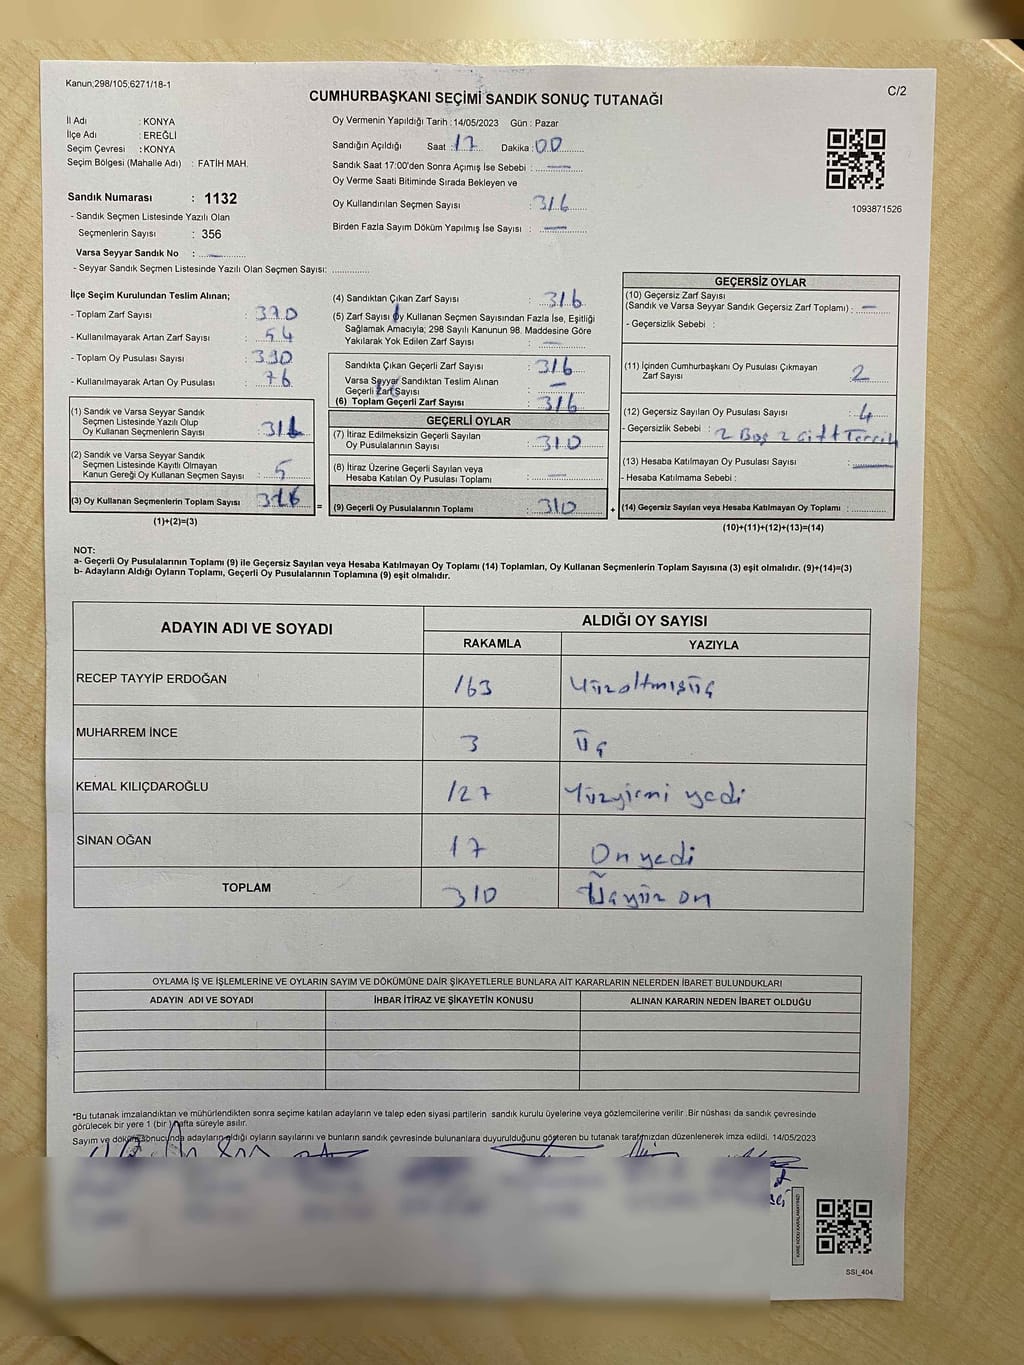 Kanun;298/105;6271/18-1
C/2
CUMHURBAŞKANI SEÇİMİ SANDIK SONUÇ TUTANAĞI
İl Adı : KONYA
İlçe Adı : EREĞLİ
Seçim Çevresi : KONYA
Seçim Bölgesi (Mahalle Adı) : FATİH MAH.
Sandık Numarası : 1132
- Sandık Seçmen Listesinde Yazılı Olan
Seçmenlerin Sayısı : 356
Varsa Seyyar Sandık No : —
- Seyyar Sandık Seçmen Listesinde Yazılı Olan Seçmen Sayısı: ..............
Oy Vermenin Yapıldığı Tarih : 14/05/2023 Gün : Pazar
Sandığın Açıldığı Saat : 17 Dakika : 00
Sandık Saat 17:00'den Sonra Açımış İse Sebebi : —
Oy Verme Saati Bitiminde Sırada Bekleyen ve
Oy Kullandırılan Seçmen Sayısı : 316
Birden Fazla Sayım Döküm Yapılmış İse Sayısı : —
1093871526
İlçe Seçim Kurulundan Teslim Alınan;
- Toplam Zarf Sayısı : 370
- Kullanılmayarak Artan Zarf Sayısı : 54
- Toplam Oy Pusulası Sayısı : 390
- Kullanılmayarak Artan Oy Pusulası : 76
(1) Sandık ve Varsa Seyyar Sandık
Seçmen Listesinde Yazılı Olup
Oy Kullanan Seçmenlerin Sayısı : 311
(2) Sandık ve Varsa Seyyar Sandık
Seçmen Listesinde Kayıtlı Olmayan
Kanun Gereği Oy Kullanan Seçmen Sayısı : 5
(3) Oy Kullanan Seçmenlerin Toplam Sayısı : 316 =
(1)+(2)=(3)
(4) Sandıktan Çıkan Zarf Sayısı : 316
(5) Zarf Sayısı Oy Kullanan Seçmen Sayısından Fazla İse, Eşitliği
Sağlamak Amacıyla; 298 Sayılı Kanunun 98. Maddesine Göre
Yakılarak Yok Edilen Zarf Sayısı : —
Sandıkta Çıkan Geçerli Zarf Sayısı : 316
Varsa Seyyar Sandıktan Teslim Alınan
Geçerli Zarf Sayısı : —
(6) Toplam Geçerli Zarf Sayısı : 316
GEÇERLİ OYLAR
(7) İtiraz Edilmeksizin Geçerli Sayılan
Oy Pusulalarının Sayısı : 310
(8) İtiraz Üzerine Geçerli Sayılan veya
Hesaba Katılan Oy Pusulası Toplamı : —
(9) Geçerli Oy Pusulalarının Toplamı : 310 +
GEÇERSİZ OYLAR
(10) Geçersiz Zarf Sayısı
(Sandık ve Varsa Seyyar Sandık Geçersiz Zarf Toplamı) : —
- Geçersizlik Sebebi :
(11) İçinden Cumhurbaşkanı Oy Pusulası Çıkmayan
Zarf Sayısı 2
(12) Geçersiz Sayılan Oy Pusulası Sayısı : 4
- Geçersizlik Sebebi : 2 Boş 2 Çift Tercih
(13) Hesaba Katılmayan Oy Pusulası Sayısı : —
- Hesaba Katılmama Sebebi :
(14) Geçersiz Sayılan veya Hesaba Katılmayan Oy Toplamı : ..........
(10)+(11)+(12)+(13)=(14)
NOT:
a- Geçerli Oy Pusulalarının Toplamı (9) ile Geçersiz Sayılan veya Hesaba Katılmayan Oy Toplamı (14) Toplamları, Oy Kullanan Seçmenlerin Toplam Sayısına (3) eşit olmalıdır. (9)+(14)=(3)
b- Adayların Aldığı Oyların Toplamı, Geçerli Oy Pusulalarının Toplamına (9) eşit olmalıdır.
ADAYIN ADI VE SOYADI ALDIĞI OY SAYISI
RAKAMLA YAZIYLA
RECEP TAYYİP ERDOĞAN 163 Yüzaltmışüç
MUHARREM İNCE 3 Üç
KEMAL KILIÇDAROĞLU 127 Yüzyirmi yedi
SİNAN OĞAN 17 On yedi
TOPLAM 310 Üçyüz on
OYLAMA İŞ VE İŞLEMLERİNE VE OYLARIN SAYIM VE DÖKÜMÜNE DAİR ŞİKAYETLERLE BUNLARA AİT KARARLARIN NELERDEN İBARET BULUNDUKLARI
ADAYIN ADI VE SOYADI İHBAR İTİRAZ VE ŞİKAYETİN KONUSU ALINAN KARARIN NEDEN İBARET OLDUĞU
*Bu tutanak imzalandıktan ve mühürlendikten sonra seçime katılan adayların ve talep eden siyasi partilerin sandık kurulu üyelerine veya gözlemcilerine verilir .Bir nüshası da sandık çevresinde
görülecek bir yere 1 (bir ) hafta süreyle asılır.
Sayım ve döküm sonucunda adayların aldığı oyların sayılarını ve bunların sandık çevresinde bulunanlara duyurulduğunu gösteren bu tutanak tarafımızdan düzenlenerek imza edildi. 14/05/2023
SSI_404